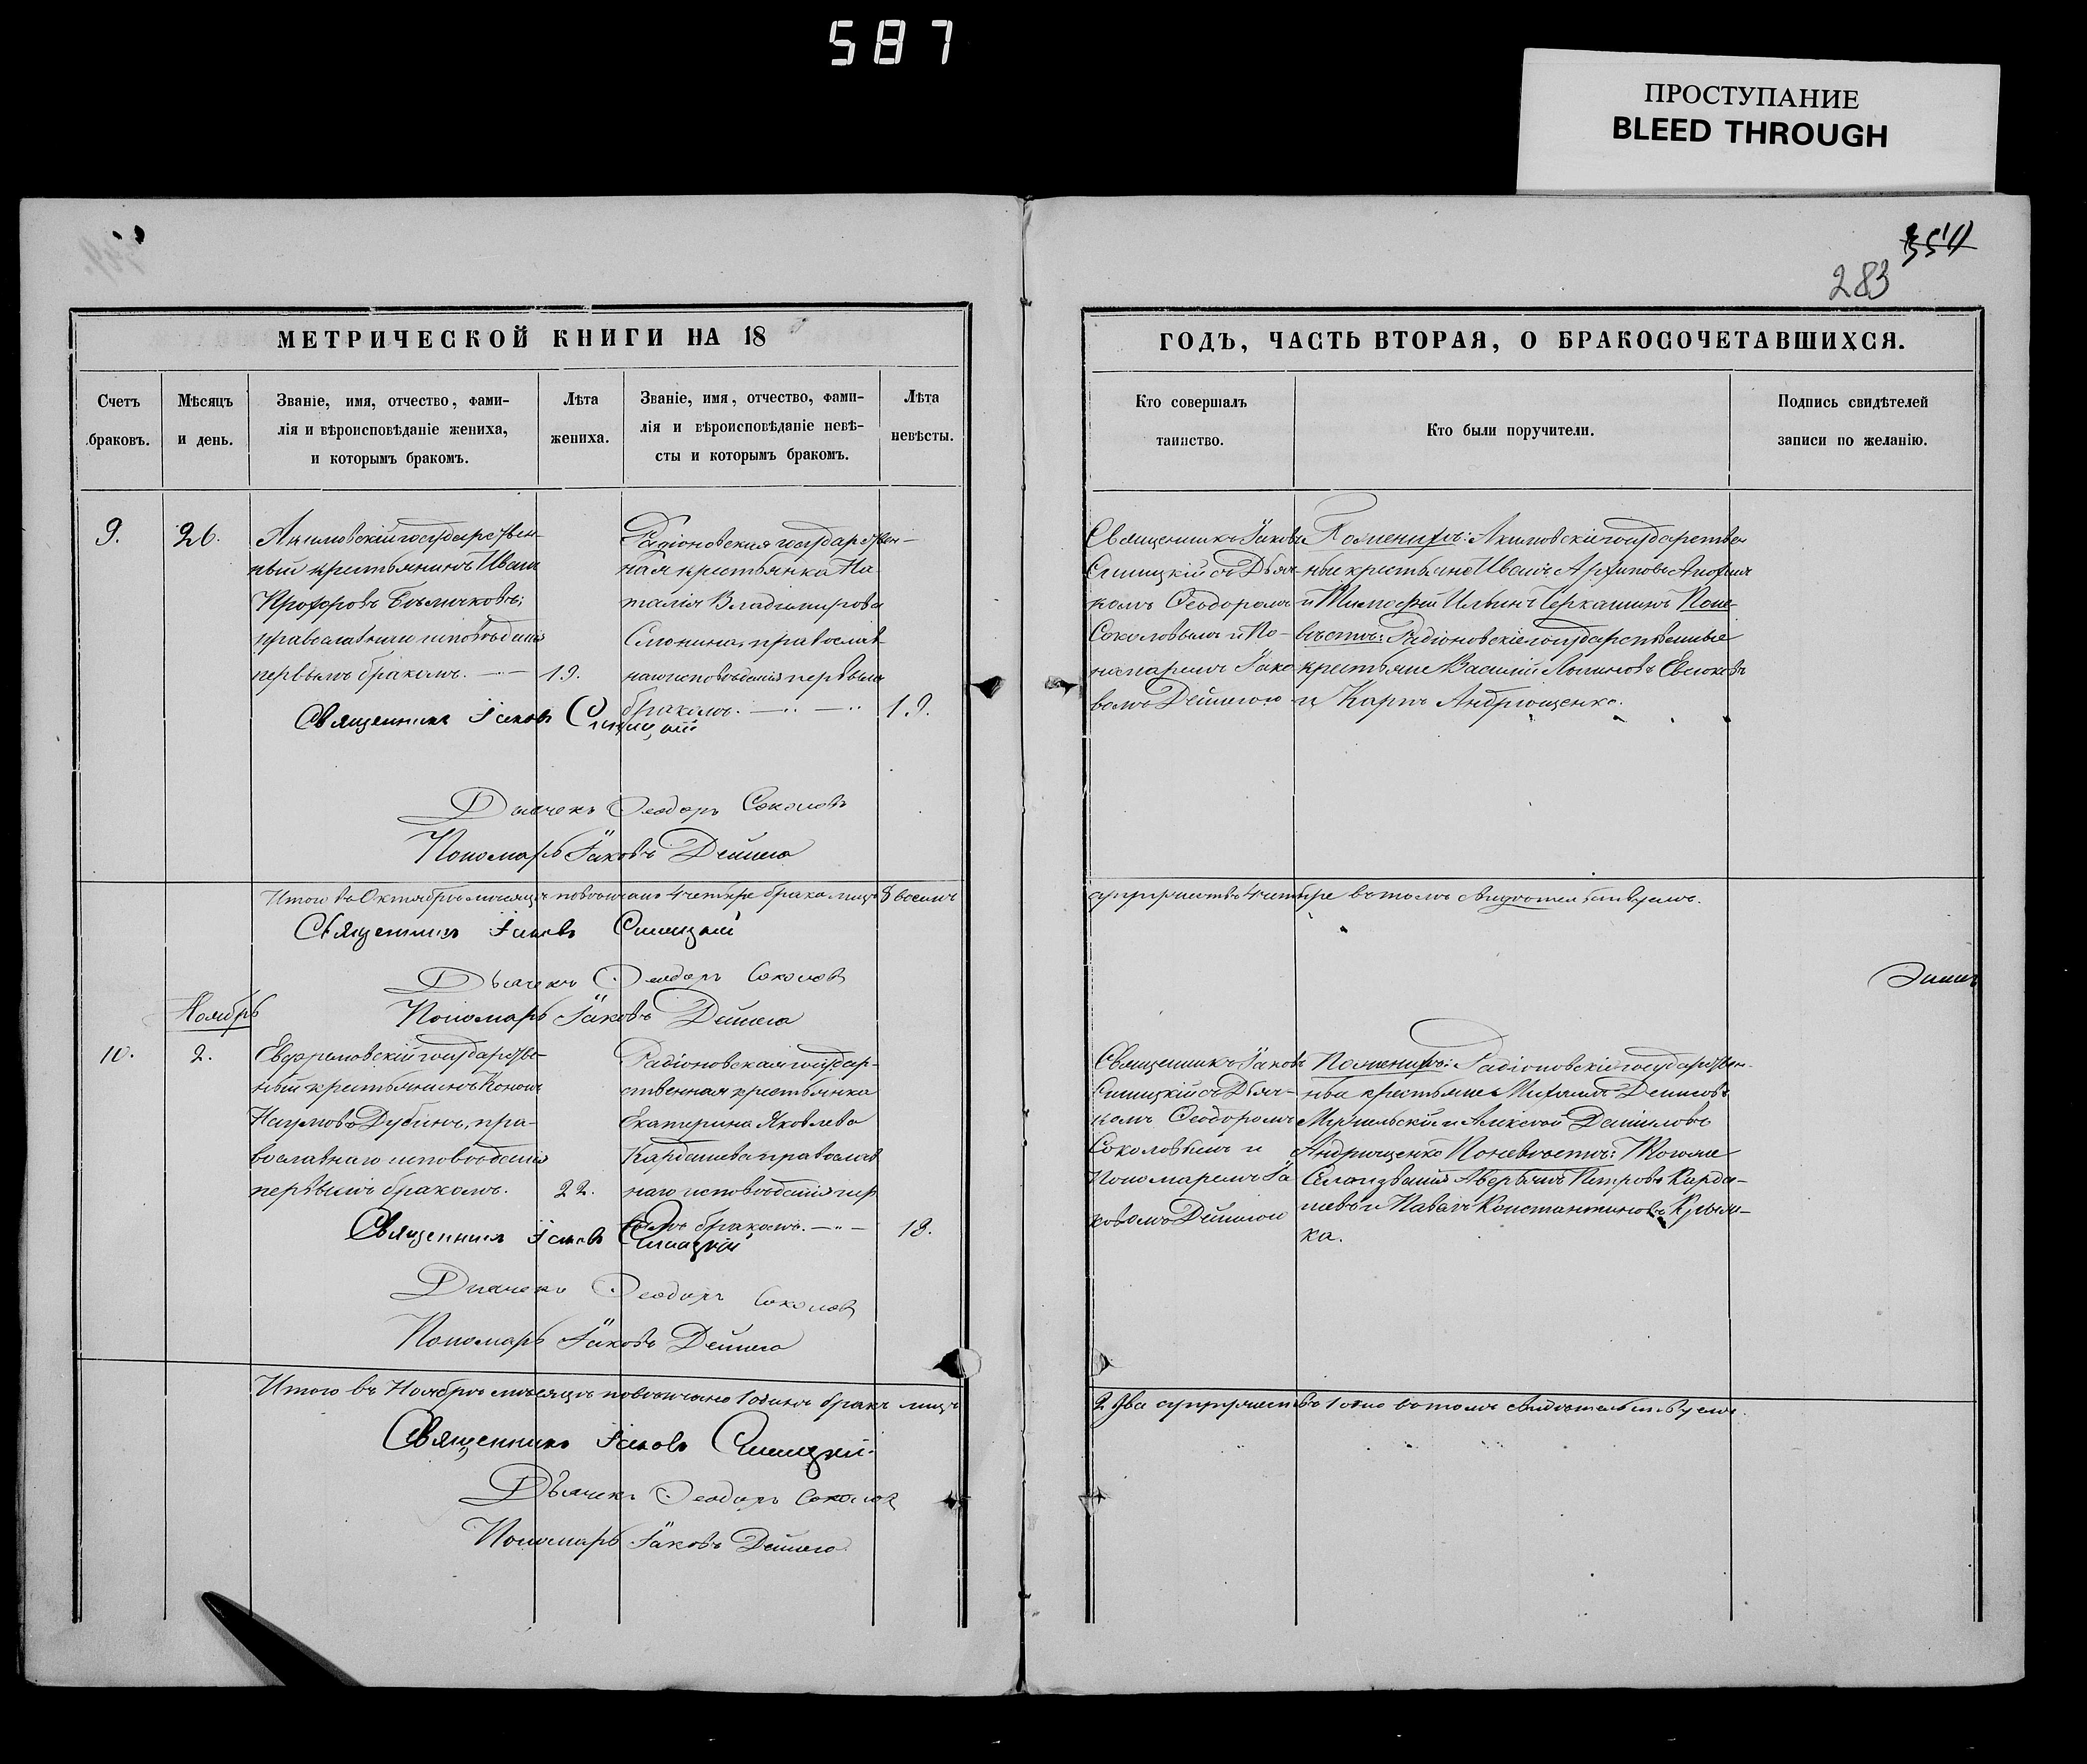 587
ПРОСТУПАНИЕ
BLEED THROUGH
354
283
МЕТРИЧЕСКОЙ КНИГИ НА 18
Счетъ браковъ.
Мѣсяцъ и день.
Званіе, имя, отчество, фами-
лія и вѣроисповѣданіе жениха,
и которымъ бракомъ.
Лѣта жениха.
Званіе, имя, отчество, фами-
лія и вѣроисповѣданіе невѣ-
сты и которымъ бракомъ.
Лѣта невѣсты.
ГОДЪ, ЧАСТЬ ВТОРАЯ, О БРАКОСОЧЕТАВШИХСЯ.
Кто совершалъ
таинство.
Кто были поручители.
Подпись свидѣтелей
записи по желанію.
9.
26.
Акимовскій государствен-
ный крестьянинъ Иванъ
Прохоровъ
православнаго исповѣданія
первымъ бракомъ.
19.
Радіоновская государствен-
ная крестьянка На-
талія Владимірова
православ
наго исповѣданія первымъ
бракомъ.
19.
Священникъ Іаковъ
Синицкій съ Дьяч-
комъ Ѳеодоромъ
Соколовымъ и По-
намаремъ Іако
вомъ Дейнегою
По женихѣ: Акимовскіе государствен
ные крестьяне Иванъ Архиповъ
и Тимофей Ильинъ По не-
вѣстѣ: Радіоновскіе государственные
крестьяне Василій
и Карпъ Андрющенко.
Священникъ Іаковъ Синицкій
Дьячекъ Ѳеодоръ Соколовъ
Пономарь Іаковъ Дейнега
Итого въ Октябрѣ мѣсяцѣ повѣнчано 4 четыре брака лицъ 8 восемь
супружествъ 4 четыре въ томъ свидѣтельствуемъ.
Священникъ Іаковъ Синицкій
Дьячекъ Ѳеодоръ Соколовъ
Пономарь Іаковъ Дейнега
Ноябрь
10.
2.
Ефремовскій государстве-
ный крестьянинъ Кононъ
Наумовъ Дубина, пра-
вославнаго исповѣданія
первымъ бракомъ.
22.
Радіоновская государ-
ственная крестьянка
Екатерина Яковлева
Кардашева православ
наго исповѣданія пер
вымъ бракомъ.
18.
Священникъ Іаковъ
Синицкій съ Дьяч-
комъ Ѳеодоромъ
Соколовымъ и
Пономаремъ Іа
ковомъ Дейнегою
По женихѣ: Радіоновскіе государствен-
ные крестьяне Михаилъ Денисовъ
и Алексѣй Даниловъ
Андрющенко По невѣстѣ: Того же
Села и званія Аверьянъ Петровъ Карда-
шевъ и Павелъ Константиновъ Крым-
ка.
Священникъ Іаковъ Синицкій
Дьячекъ Ѳеодоръ Соколовъ
Пономарь Іаковъ Дейнега
Итого въ Ноябрѣ мѣсяцѣ повѣнчано 1 одинъ бракъ лицъ
2 два супружество 1 одно въ томъ свидѣтельствуемъ.
Священникъ Іаковъ Синицкій
Дьячекъ Ѳеодоръ Соколовъ
Пономарь Іаковъ Дейнега